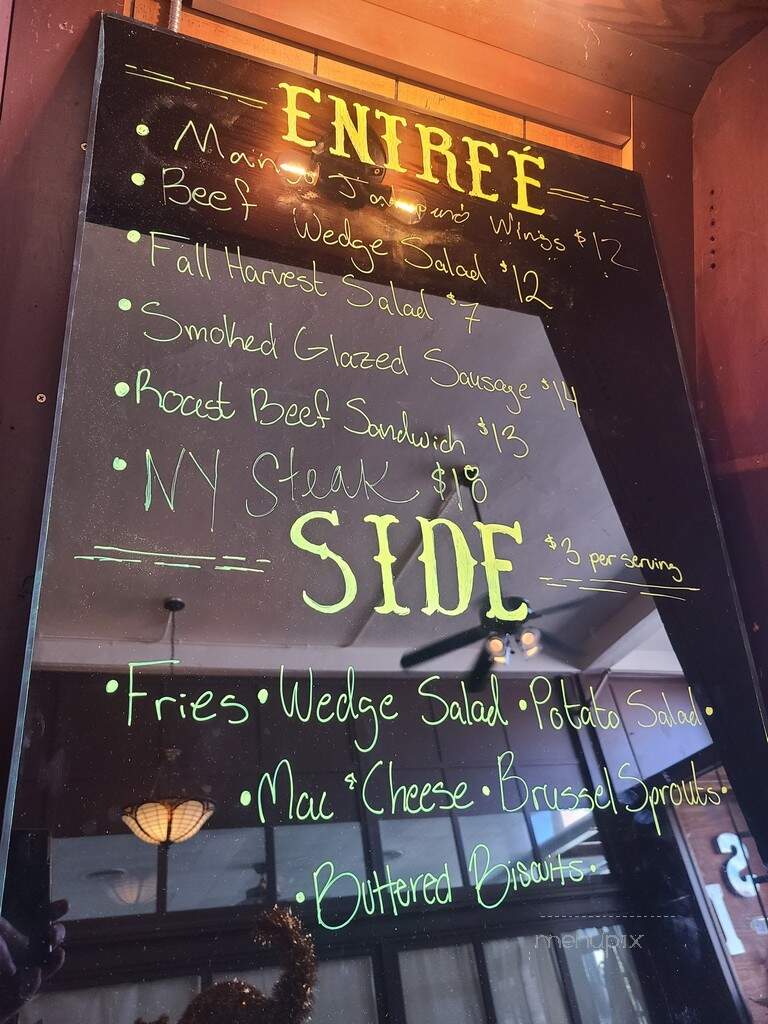 ENTREÉ
• Mango Jalapeno Wings $12
• Beef Wedge Salad $12
• Fall Harvest Salad $7
• Smoked Glazed Sausage $14
• Roast Beef Sandwich $13
• NY Steak $18
SIDE $3 per serving
• Fries • Wedge Salad • Potato Salad •
• Mac & Cheese • Brussel Sprouts •
• Buttered Biscuits •
menupix